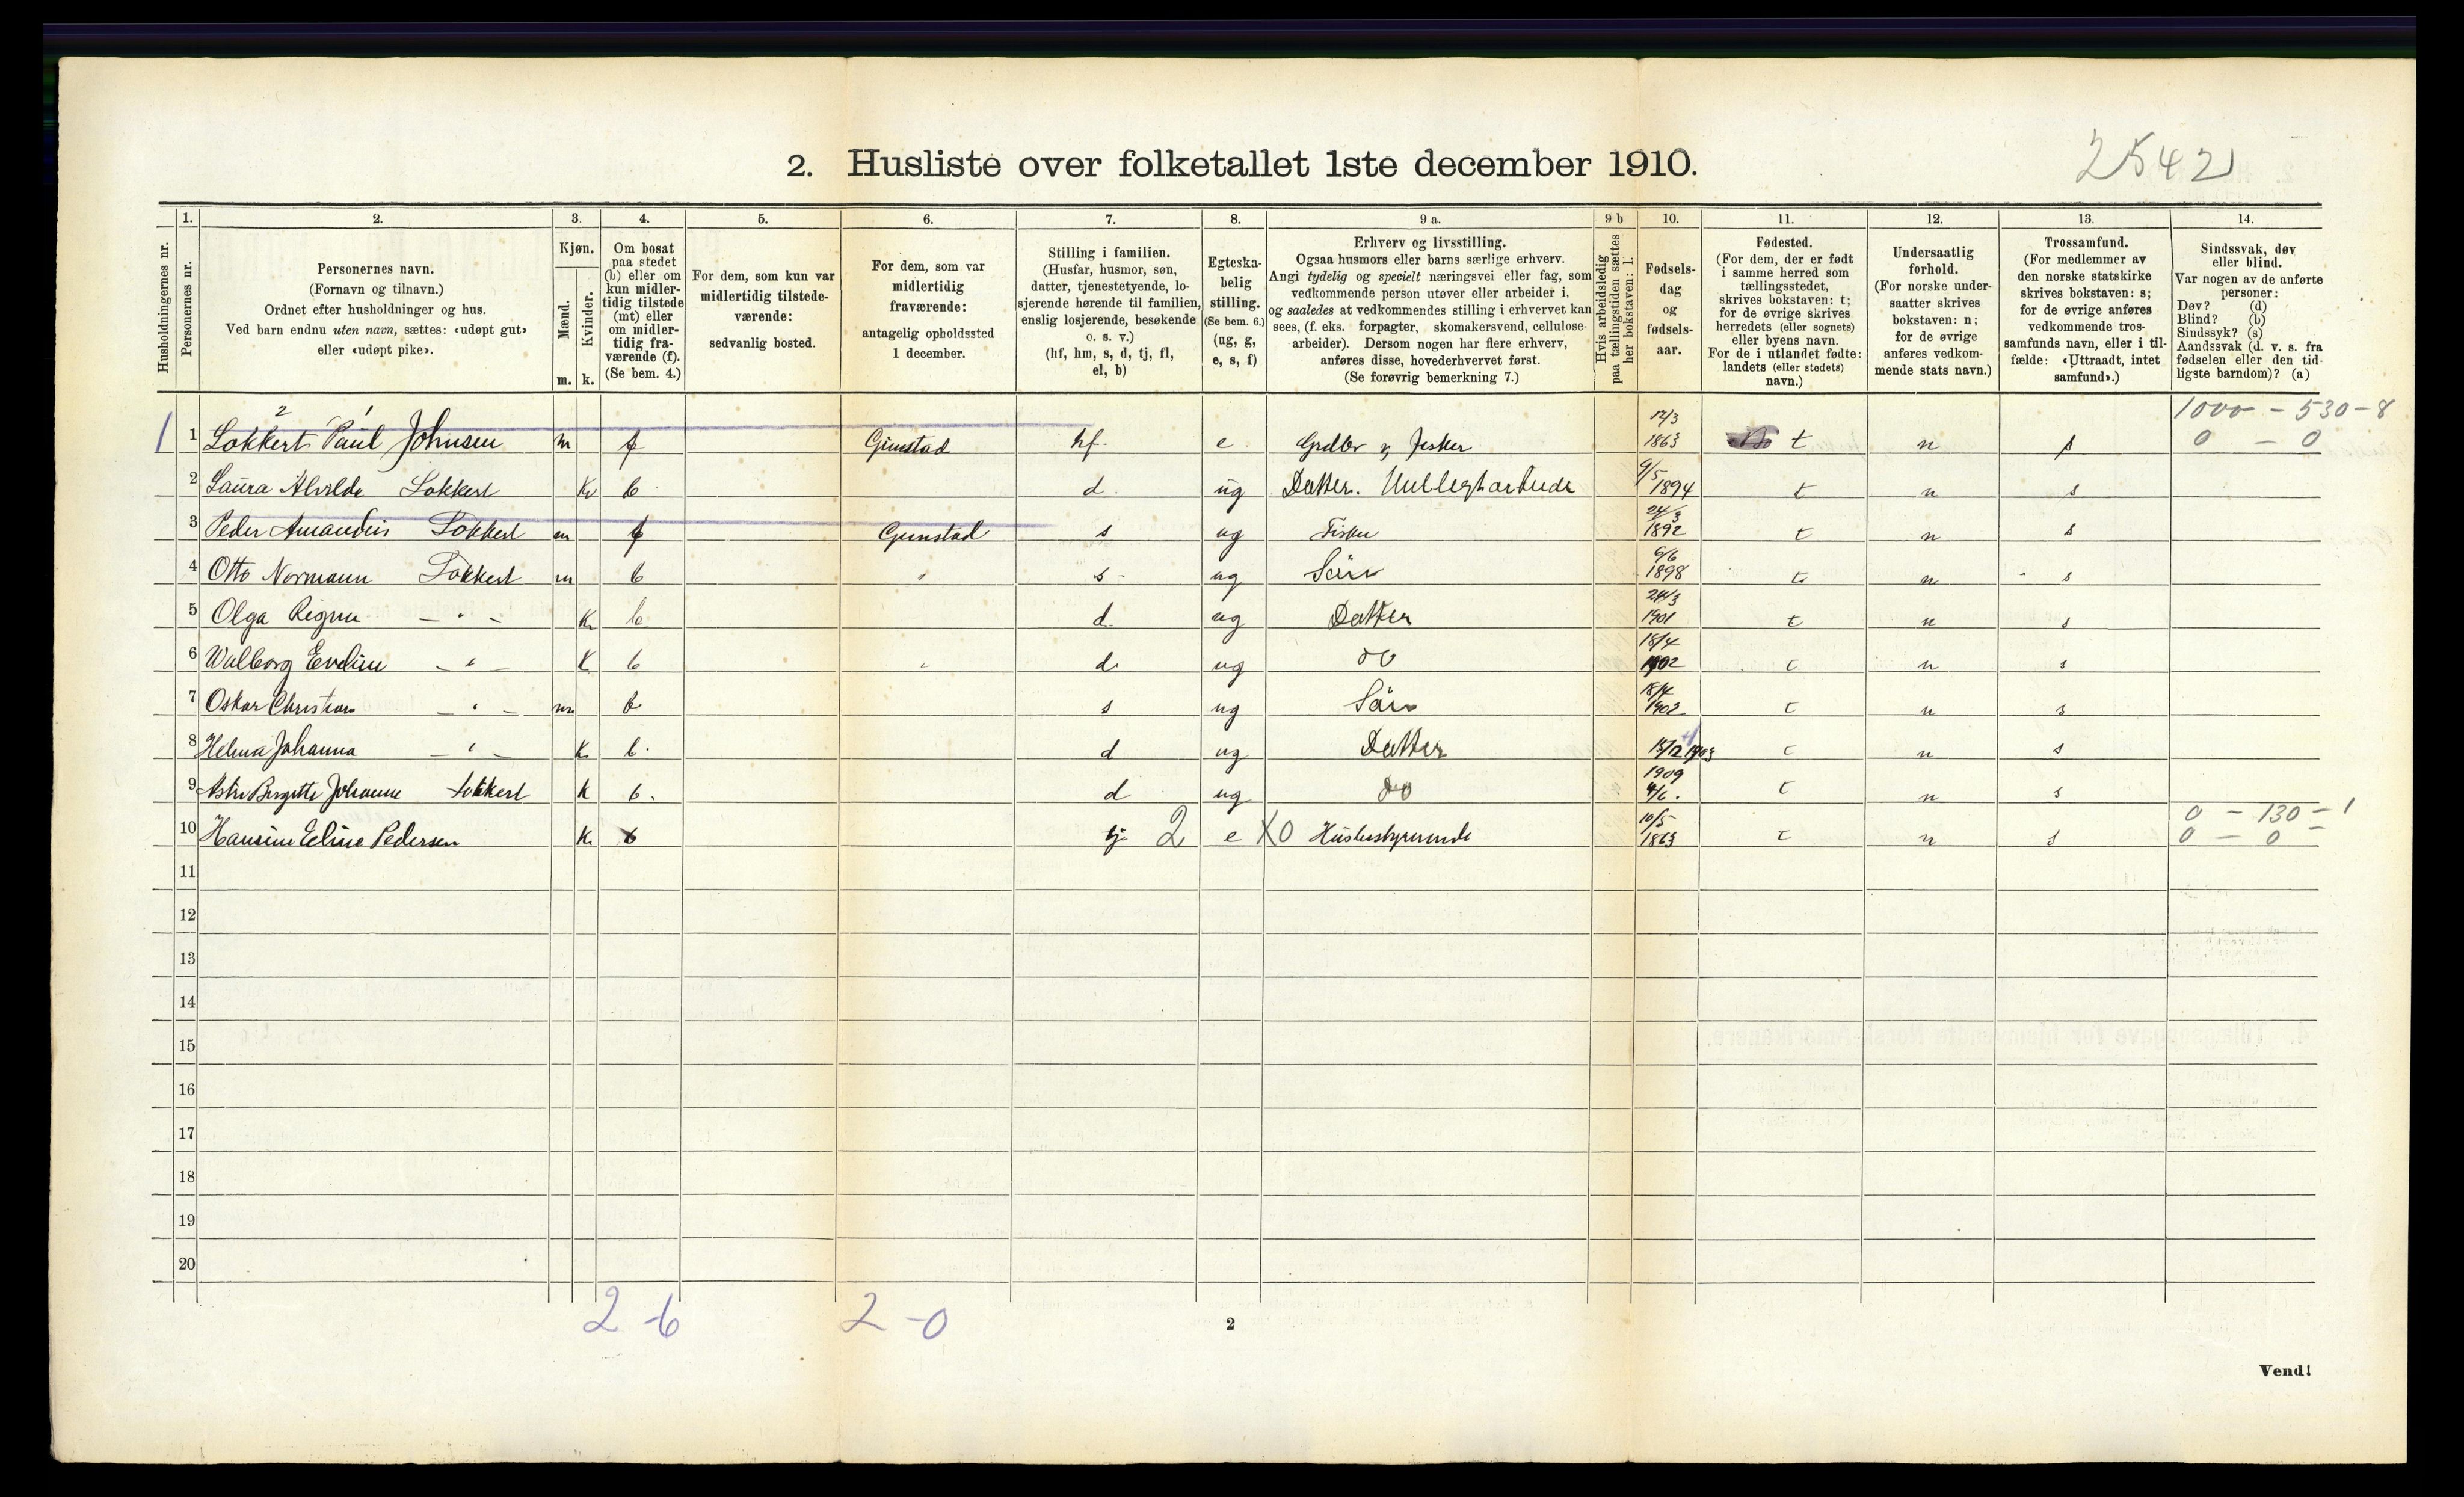 2. Husliste over folketallet 1ste december 1910.
2542
1. 2. 3. 4. 5. 6. 7. 8. 9 a. 9 b 10. 11. 12. 13. 14.
Husholdningernes nr.
Personernes nr.
Personernes navn.
(Fornavn og tilnavn.)
Ordnet efter husholdninger og hus.
Ved barn endnu uten navn, sættes: «udøpt gut»
eller «udøpt pike».
Kjøn.
Mænd.
Kvinder.
m. k.
Om bosat
paa stedet
(b) eller om
kun midler-
tidig tilstede
(mt) eller
om midler-
tidig fra-
værende (f).
(Se bem. 4.)
For dem, som kun var
midlertidig tilstede-
værende:
sedvanlig bosted.
For dem, som var
midlertidig
fraværende:
antagelig opholdssted
1 december.
Stilling i familien.
(Husfar, husmor, søn,
datter, tjenestetyende, lo-
sjerende hørende til familien,
enslig losjerende, besøkende
o. s. v.)
(hf, hm, s, d, tj, fl,
el, b)
Egteska-
belig
stilling.
(Se bem. 6.)
(ug, g,
e, s, f)
Erhverv og livsstilling.
Ogsaa husmors eller barns særlige erhverv.
Angi tydelig og specielt næringsvei eller fag, som
vedkommende person utøver eller arbeider i,
og saaledes at vedkommendes stilling i erhvervet kan
sees, (f. eks. forpagter, skomakersvend, cellulose-
arbeider). Dersom nogen har flere erhverv,
anføres disse, hovederhvervet først.
(Se forøvrig bemerkning 7.)
Hvis arbeidsledig
paa tællingstiden sættes
her bokstaven: l.
Fødsels-
dag
og
fødsels-
aar.
Fødested.
(For dem, der er født
i samme herred som
tællingsstedet,
skrives bokstaven: t;
for de øvrige skrives
herredets (eller sognets)
eller byens navn.
For de i utlandet fødte:
landets (eller stedets)
navn.)
Undersaatlig
forhold.
(For norske under-
saatter skrives
bokstaven: n;
for de øvrige
anføres vedkom-
mende stats navn.)
Trossamfund.
(For medlemmer av
den norske statskirke
skrives bokstaven: s;
for de øvrige anføres
vedkommende tros-
samfunds navn, eller i til-
fælde: «Uttraadt, intet
samfund».)
Sindssvak, døv
eller blind.
Var nogen av de anførte
personer:
Døv? (d)
Blind? (b)
Sindssyk? (s)
Aandssvak (d. v. s. fra
fødselen eller den tid-
ligste barndom)? (a)
2 1 17/3 1000 - 530 - 8
1 1 Lokkert Paul Johnsen m f Gimstad hf. e 1863 t n s 0 - 0
2 Laura Alvilde Lokkert K b d. ug Datter. 9/5 1894 t n s
3 Peder Amandus Lokkert m f Gimstad s ug Fisker 24/3 1892 t n s
4 Otto Normann Lokkert m b " s ug Sön 6/6 1898 t n s
5 Olga Regine - " - K b d. ug Datter 24/3 1901 t n s
6 Walborg Eveline - " - K b " d ug do 18/4 1902 t n s
7 Oskar Christian - " - m b s ug Sön 18/4 1902 t n s
8 Helma Johanna - " - K b. d ug Datter 15/12 1903 t n s
9 Birgitte Johanne Lokkert K b. d ug do 1909 4/6. t n s
0 - 130 - 1
10 Hansine Eeline Pedersen K b tj 2 e X0 Husbestyrerinde 10/5 1863 t n s 0 - 0
11
12
13
14
15
16
17
18
19
20
2 - 6 2 - 0
2
Vend!